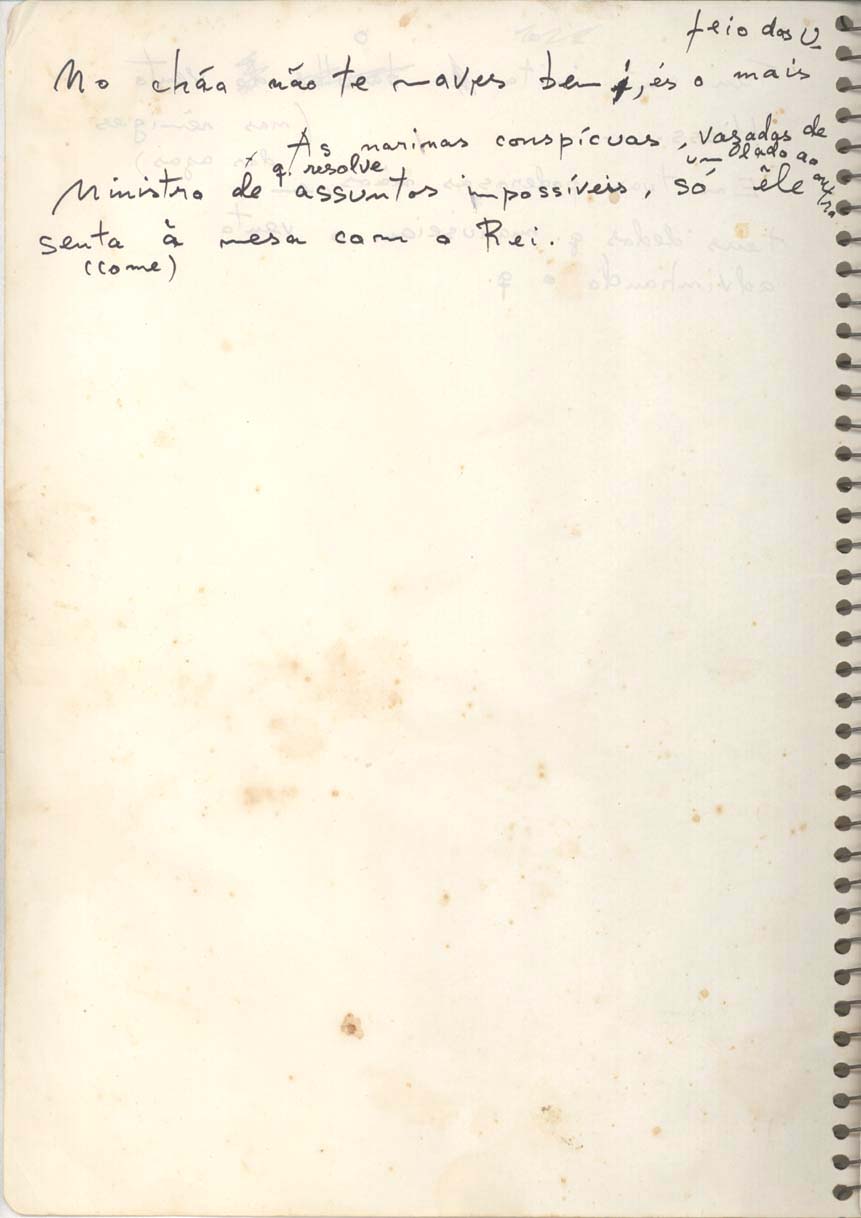 feio dos U
No chão não te moves bem, és o mais
As narinas conspícuas, vazadas de
um lado ao outro
q. resolve
Ministro de assuntos impossíveis, só êle
senta à mesa com o Rei.
(come)